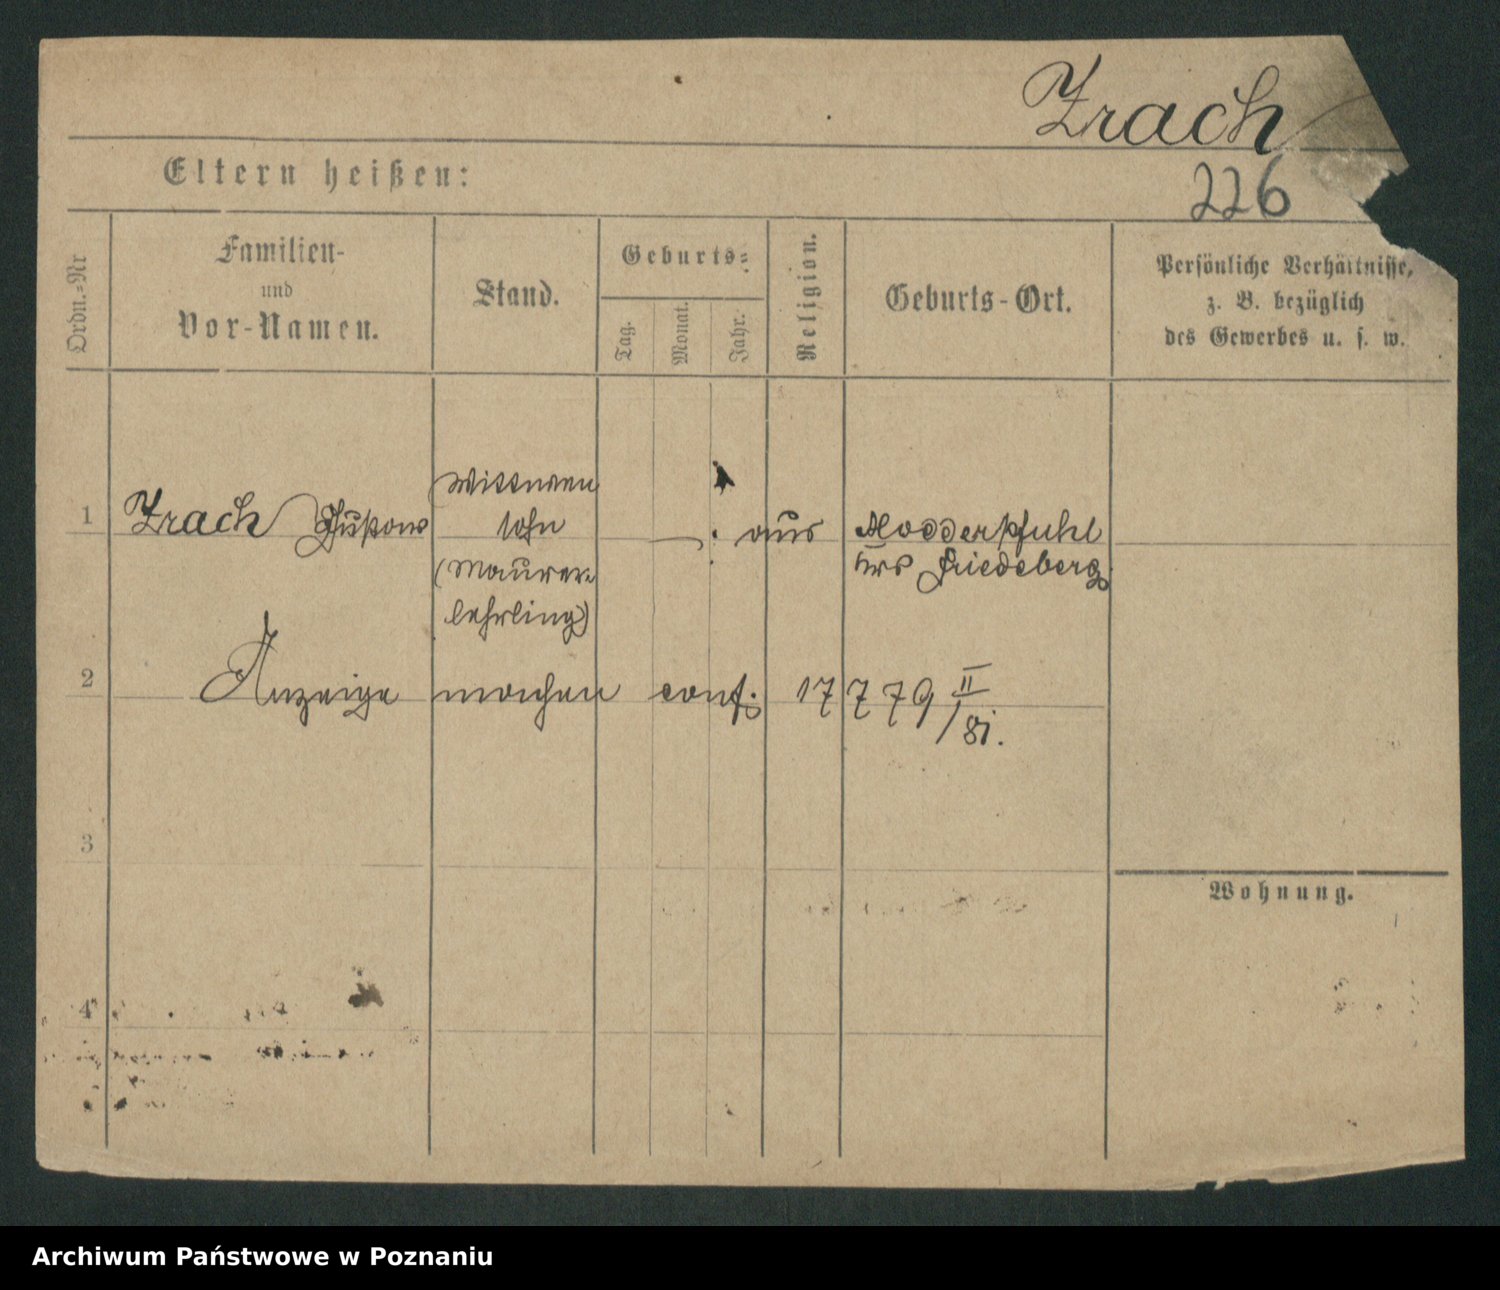 Zrach
226
Eltern heißen:
Ordn.=Nr
Familien-
und
Vor-Namen.
Stand.
Geburts=
Tag.
Monat.
Jahr.
Religion.
Geburts-Ort.
Persönliche Verhältnisse,
z. B. bezüglich
des Gewerbes u. s. w.
1
Zrach Gustav
Wittwen
sohn
(Maurer-
lehrling)
aus
Modderpfuhl
Krs Friedeberg
2
Anzeige machen conf. 17779 II/81.
3
Wohnung.
4
Archiwum Państwowe w Poznaniu